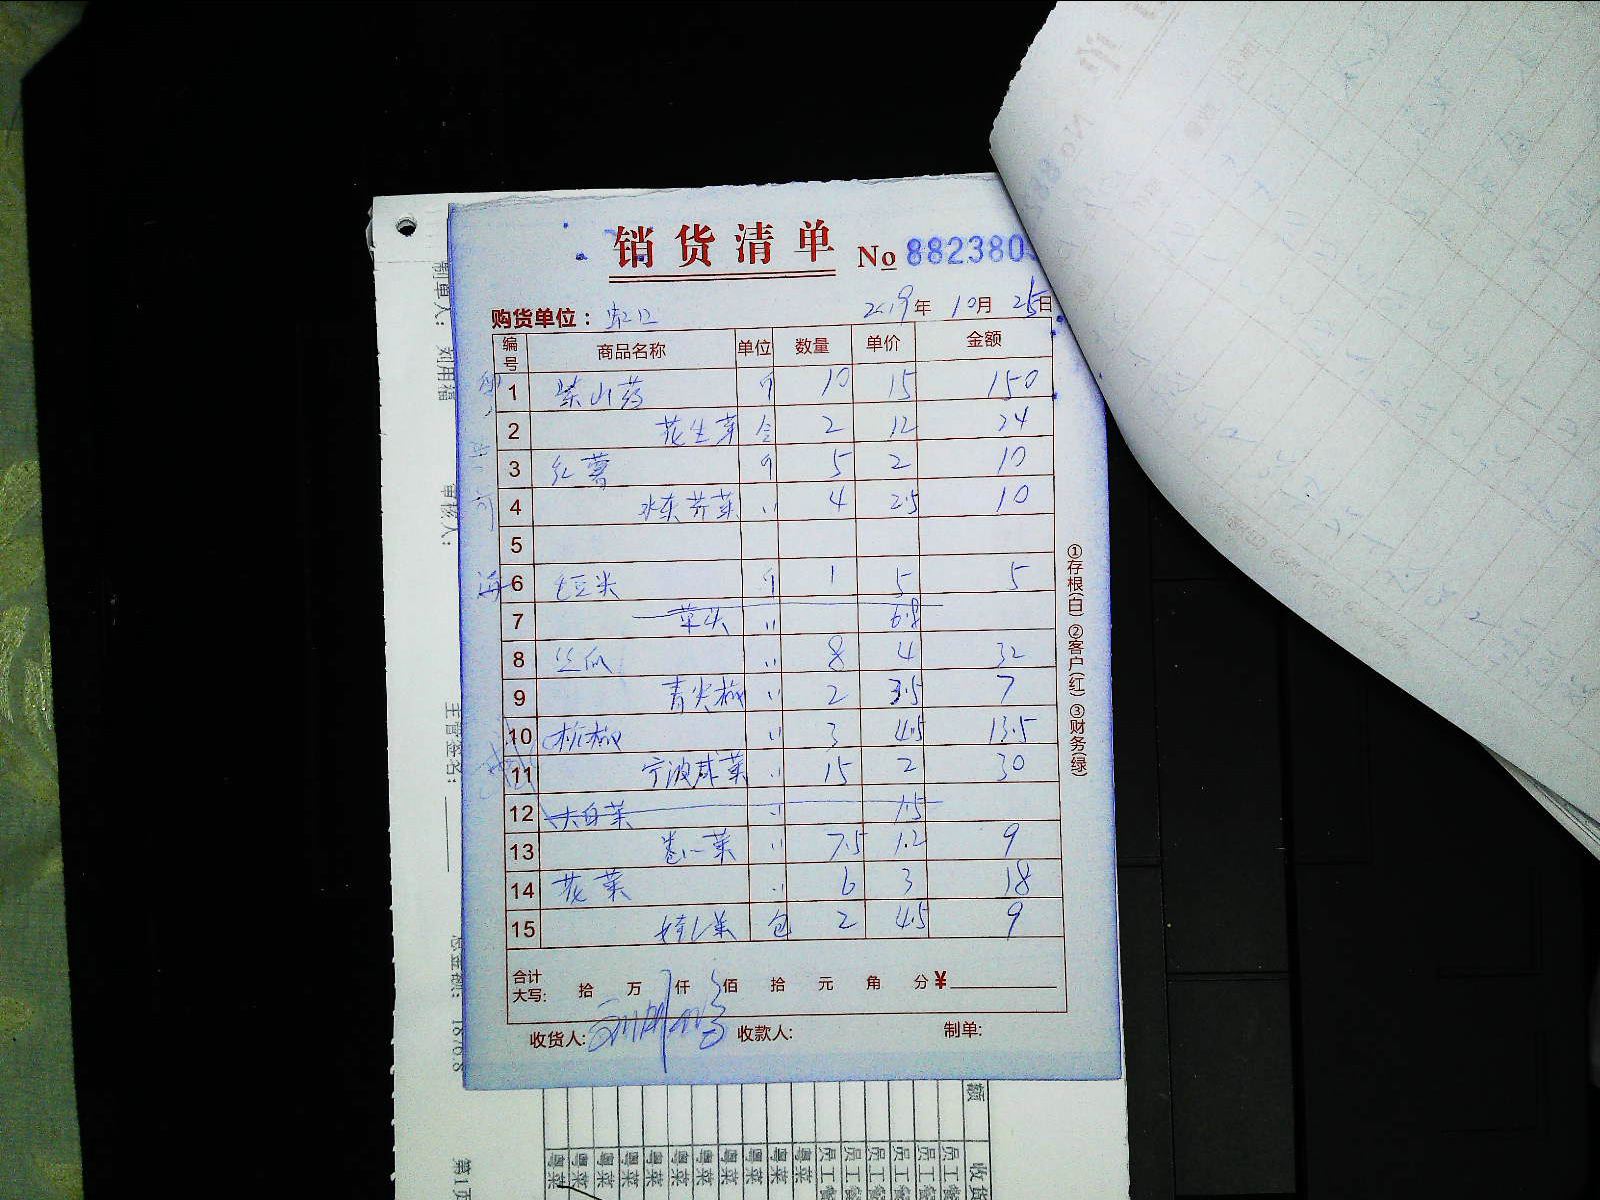 销货清单 No 882380
购货单位： 2019年 10月 25日
编号 商品名称 单位 数量 单价 金额
1 紫山药 斤 10 15 150
2 花生芽 盒 2 12 24
3 红薯 斤 5 2 10
4 水东芥菜 〃 4 2.5 10
5
6 毛豆米 斤 1 5 5
7 草头 〃 6.8
8 丝瓜 〃 8 4 32
9 青尖椒 〃 2 3.5 7
10 杭椒 〃 3 4.5 13.5
11 宁波咸菜 〃 15 2 30
12 大白菜 〃 1.5
13 卷心菜 〃 7.5 1.2 9
14 花菜 〃 6 3 18
15 包 2 4.5 9
合计大写: 拾 万 仟 佰 拾 元 角 分 ¥
收货人: 收款人: 制单:
①存根(白) ②客户(红) ③财务(绿)
制单人: 刘用福
审核人:
主管签名:
总金额: 1876.8
第1页